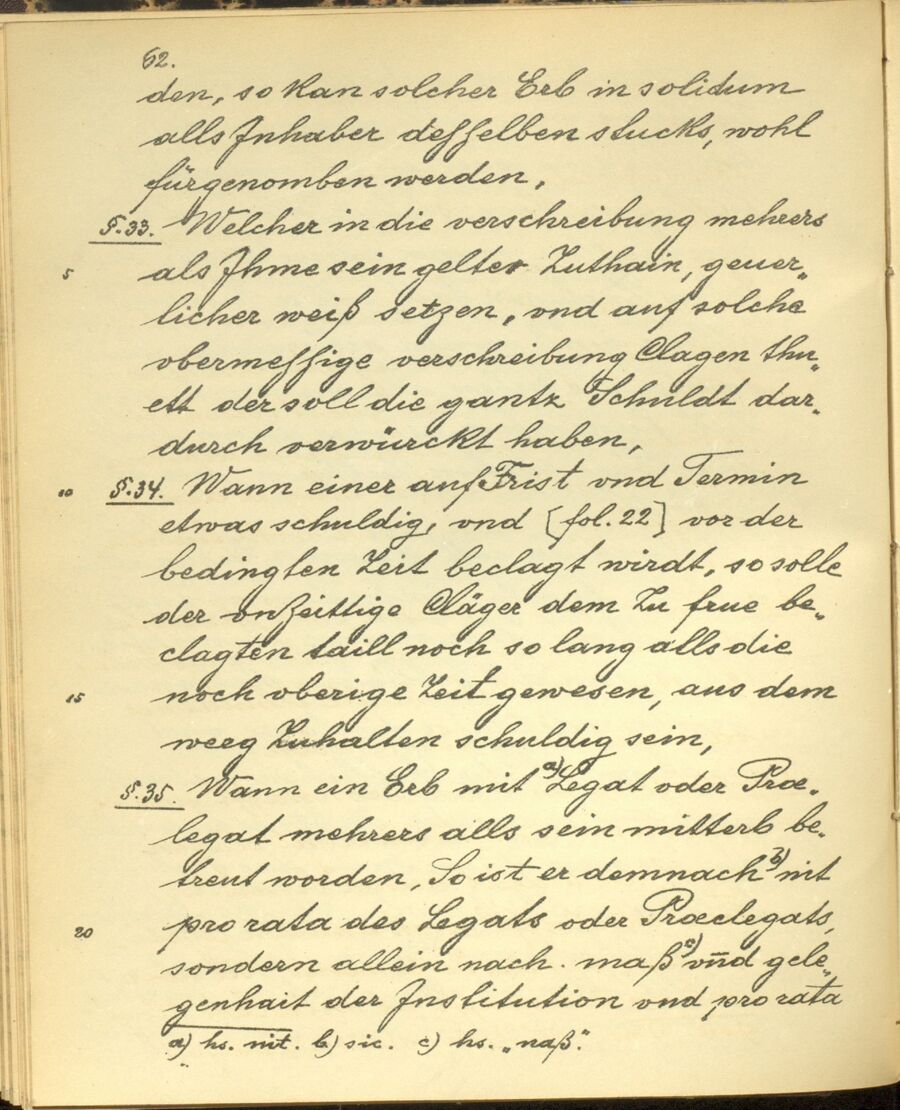 62.
den, so kan solcher Erb in solidum
alls Inhaber desselben stucks, wohl
fürgenomben werden,
§.33. Welcher in die verschreibung mehrers
5 als Ihme sein gelter Zuthain, geuer„
licher weiß setzen, vnd auf solche
vbermessige verschreibung Clagen thu„
ett der soll die gantz Schuldt dar„
durch verwürckt haben,
10 §.34. Wann einer auf Frist vnd Termin
etwas schuldig, vnd [fol. 22] vor der
bedingten Zeit beclagt wirdt, so solle
der vnZeittige Cläger dem Zu frue be„
clagten taill noch so lang alls die
15 noch vberige Zeit gewesen, aus dem
weeg Zuhalten schuldig sein,
§.35. Wann ein Erb mit a) Legat oder Præ„
legat mehrers alls sein mitterb be„
treut worden, So ist er demnach b) nit
20 pro rata des Legats oder Præelegats,
sondern allein nach. maß c) vn̅d gele„
genhait der Institution vnd pro rata
a) hs. nit. b) sic. c) hs. „naß“.